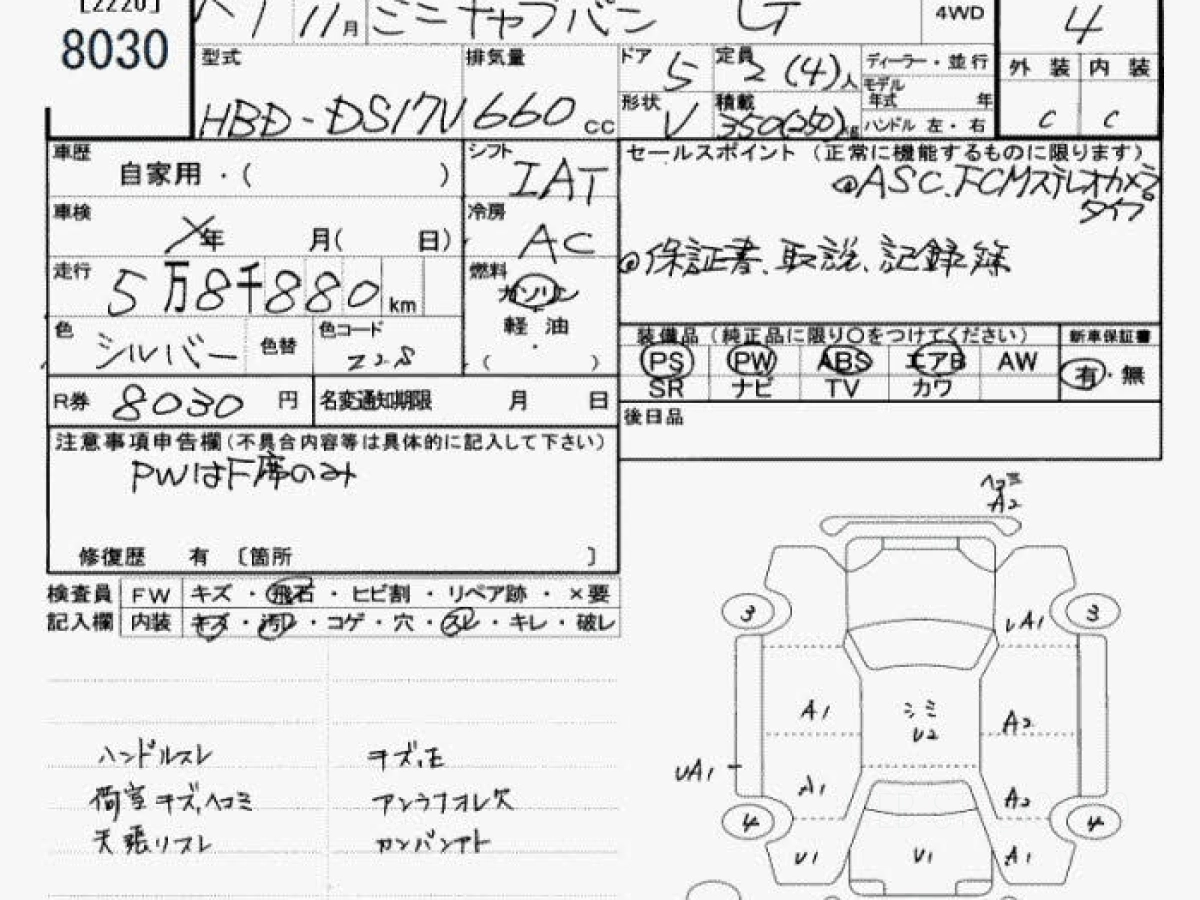 [2220]
8030
R1 11月 ミニキャブバン G 4WD 4
型式 HBD-DS17V
排気量 660 cc
ドア 5
定員 2 (4)人
ディーラー・並行
形状 V
積載 350(250)kg
モデル年式 年
ハンドル 左・右
外装 内装
C C
車歴 自家用・( )
シフト IAT
車検 ×年 月( 日)
冷房 AC
走行 5万8千880km
燃料 ガソリン
軽油
・
( )
色 シルバー 色替 色コード Z28
セールスポイント (正常に機能するものに限ります)
◎ASC、FCMステレオカメラ
タイプ
◎保証書、取説、記録簿
装備品 (純正品に限り〇をつけてください) 新車保証書
PS PW ABS エアB AW 有・無
SR ナビ TV カワ
R券 8030 円 名変通知期限 月 日
後日品
注意事項申告欄(不具合内容等は具体的に記入して下さい)
PWはF席のみ
修復歴 有 〔箇所 〕
検査員 FW キズ・飛石・ヒビ割・リペア跡・×要
記入欄 内装 キズ・汚レ・コゲ・穴・スレ・キレ・破レ
ハンドルスレ
荷室キズ,ヘコミ
天張リスレ
キズ,E
アンテナオレ欠
カンバンアト
ヘコミ
A2
3 3
UA1
A1 シミ A2
U2
UA1
A1 A2
4 4
U1 U1 A1